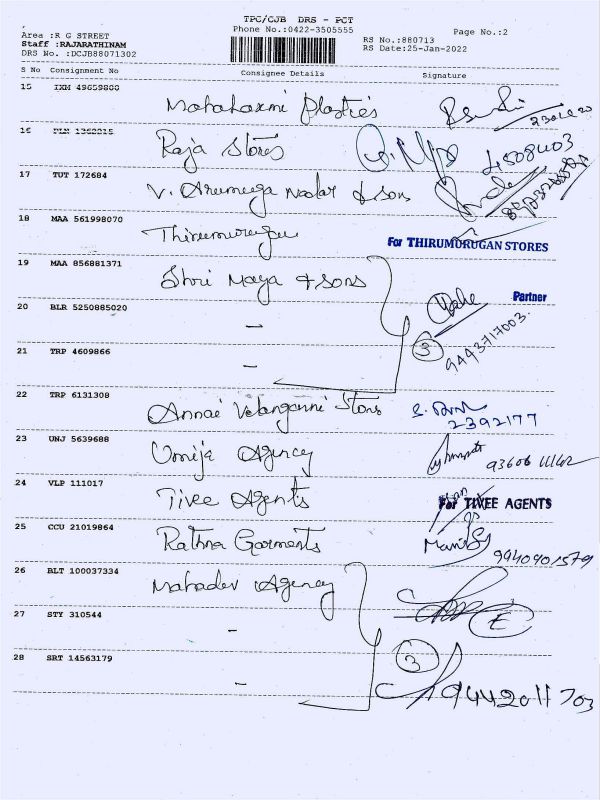 TPC/CJB DRS - PCT
Area :R G STREET Phone No.:0422-3505555 Page No.:2
Staff :RAJARATHINAM RS No.:880713
DRS No. :DCJB88071302 RS Date:25-Jan-2022
S No Consignment No Consignee Details Signature
15 IXM 49659800 Mahalaxmi Plastics
16 Raja Stores
17 TUT 172684 V. Arumuga Nadar & sons
18 MAA 561998070 Thirumurugan For THIRUMURUGAN STORES
19 MAA 856881371 Shri Maya & sons Partner
20 BLR 5250885020 — 3 9443717003
21 TRP 4609866 —
22 TRP 6131308 Annai Velanganni Stores 2392177
23 UNJ 5639688 Umija Agency
24 VLP 111017 Tivee Agents For TIVEE AGENTS
25 CCU 21019864 Rathna Garments 9940901579
26 BLT 100037334 Mahadev Agency
27 STY 310544 — E
28 SRT 14563179 — 3 9442011703